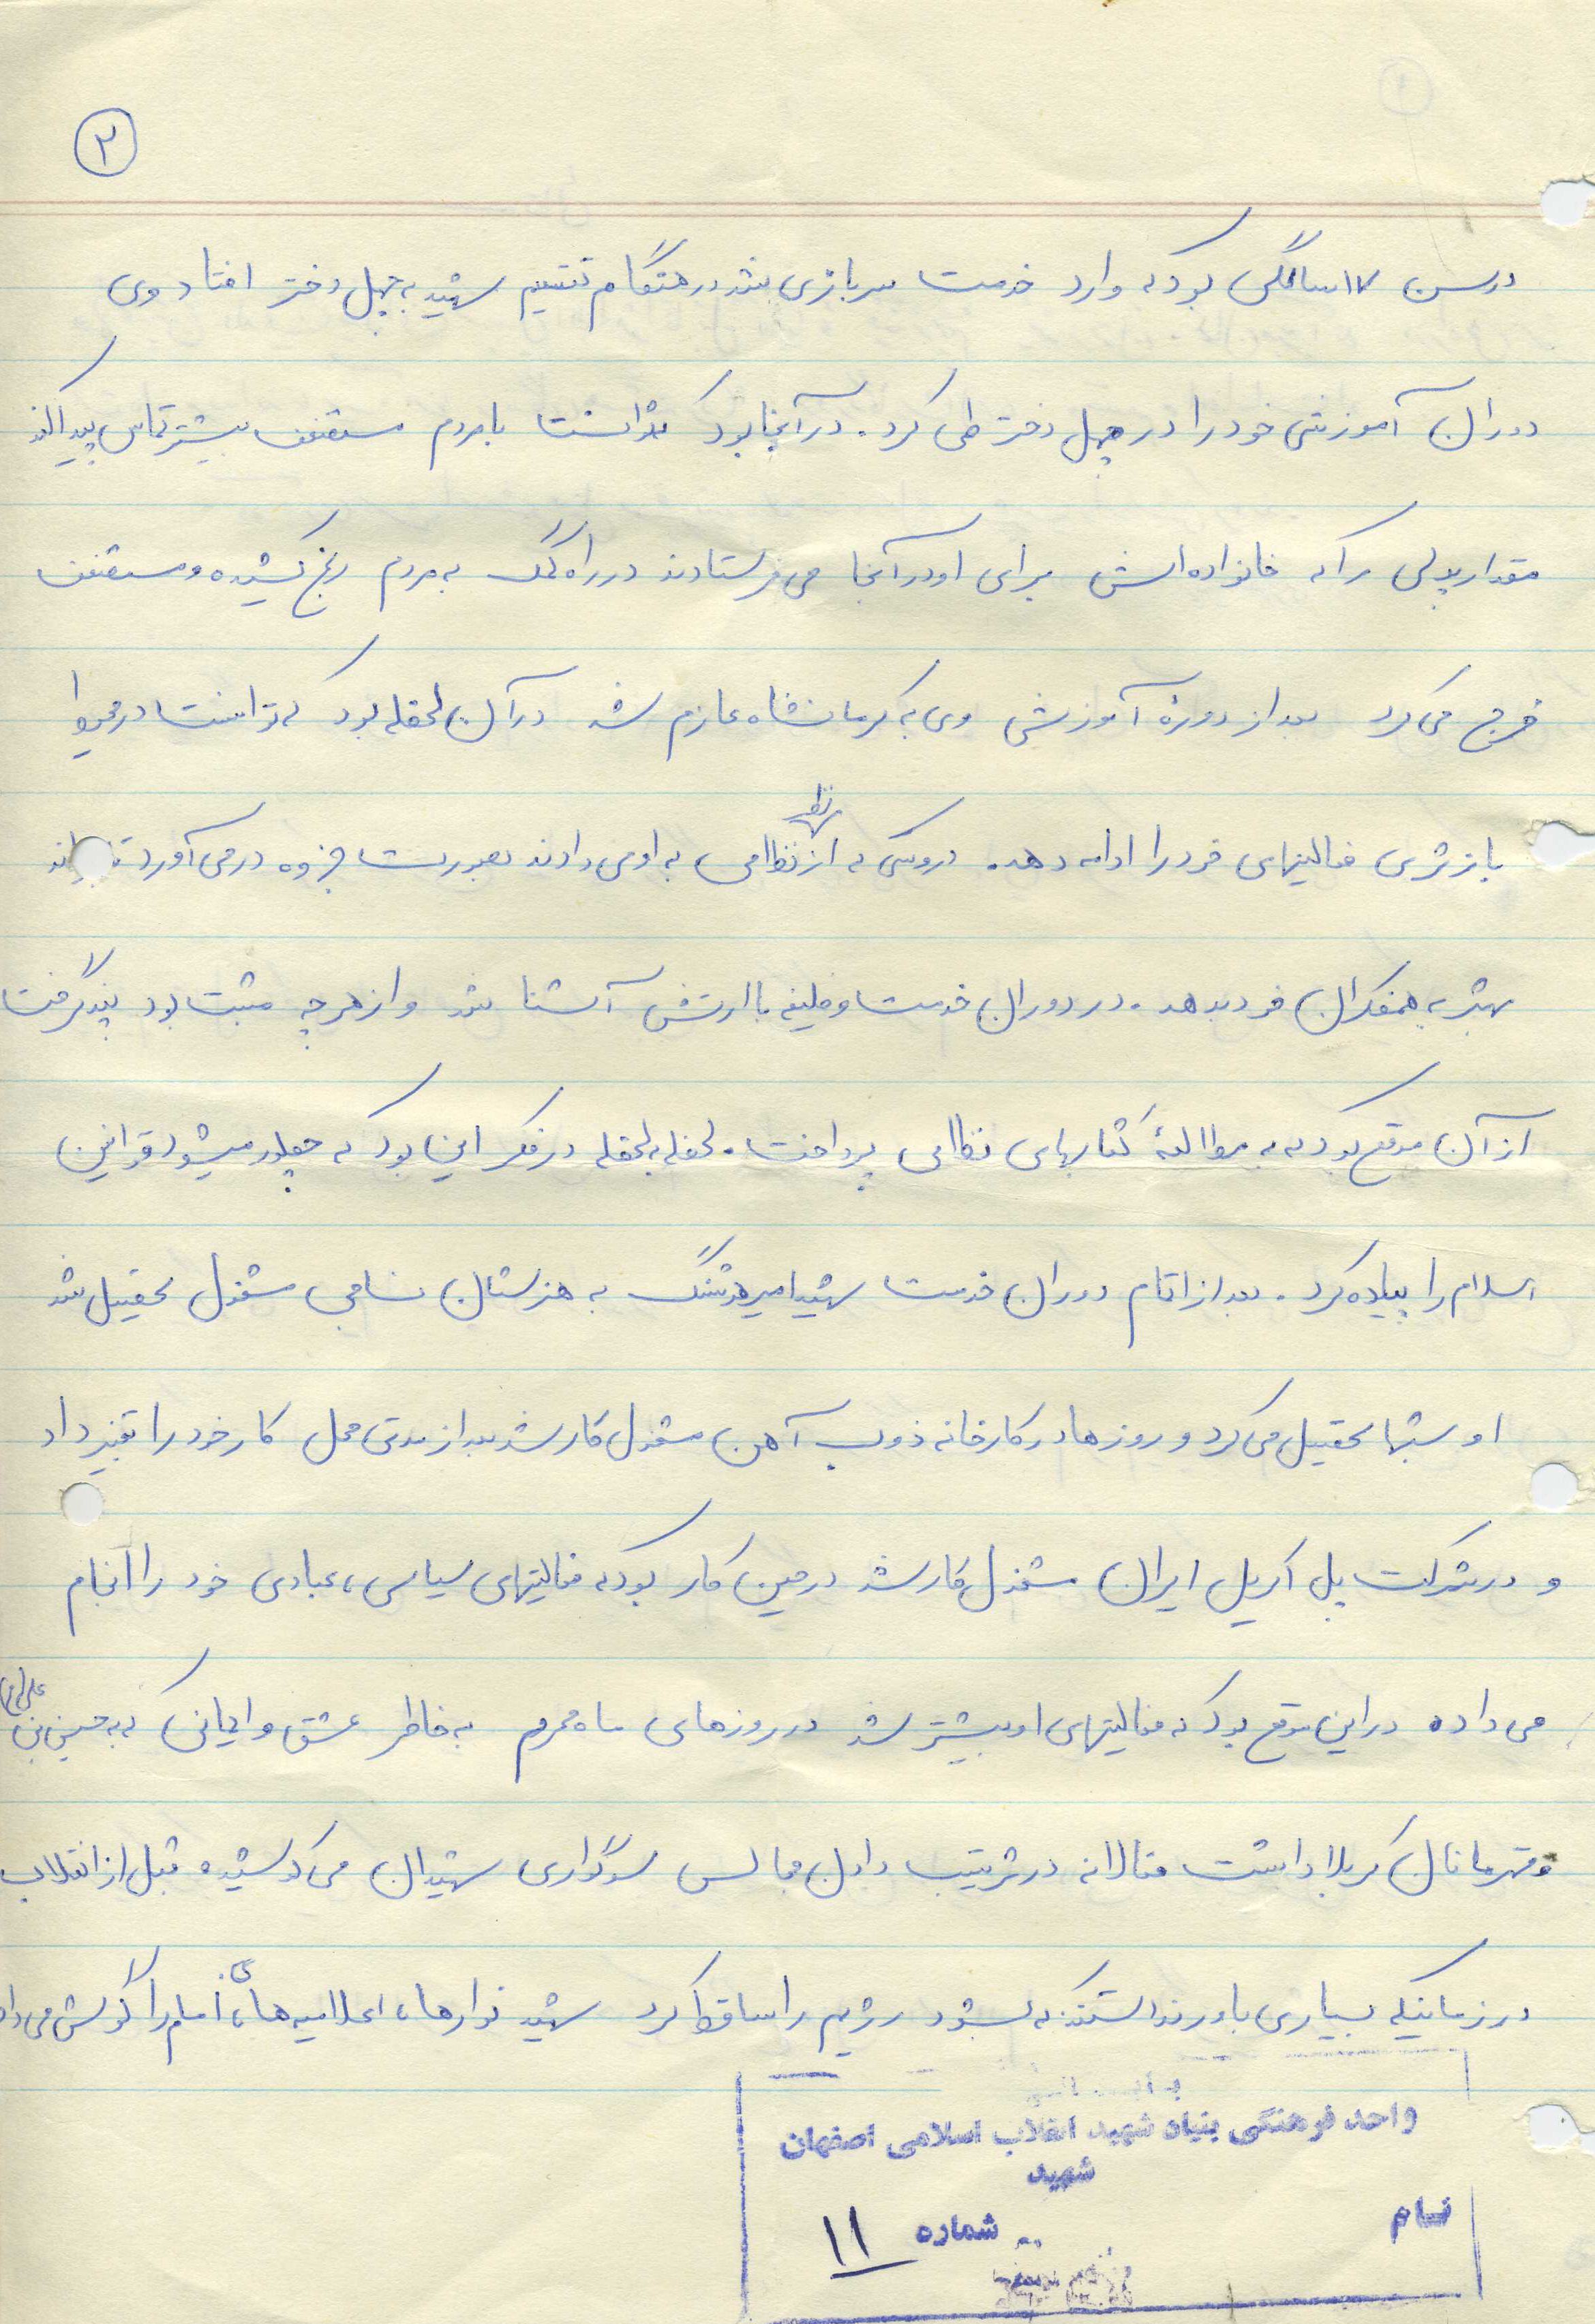 ۲
در سن ۱۷ سالگی بود که وارد خدمت سربازی شد در هنگام تقسیم شهید به چهل دختر افتاد وی
دوران آموزشی خود را در چهل دختر طی کرد. در آنجا بود که توانست با مردم مستضعف بیشتر تماس پیدا کند
مقدار پولی را که خانواده اش برای او در آنجا می فرستادند در راه کمک به مردم رنج کشیده و مستضعف
خرج می کرد بعد از دورهٔ آموزشی وی به کرمانشاه عازم شد در آن لحظه بود که توانست در محیط
باز تری فعالیتهای خود را ادامه دهد. دروسی که از نظر نظامی به او می دادند بصورت جزوه در می آورد تا بتواند
بهتر به همفکران خود بدهد. در دوران خدمت وظیفه با ارتش آشنا شد و از هر چه مثبت بود پند گرفت
از آن موقع بود که به مطالعهٔ کتابهای نظامی پرداخت. لحظه به لحظه در فکر این بود که چطور میشود قوانین
اسلام را پیاده کرد. بعد از اتمام دوران خدمت شهید امیر هوشنگ به هنرستان نساجی مشغول تحصیل شد
او شبها تحصیل می کرد و روزها در کارخانه ذوب آهن مشغول کار شد بعد از مدتی محل کار خود را تغییر داد
و در شرکت پلی اکریل ایران مشغول کار شد در حین کار بود که فعالیتهای سیاسی، عبادی خود را انجام
می داده در این موقع بود که فعالیتهای او بیشتر شد در روزهای ماه محرم به خاطر عشق و ایمانی که به حسین بن علی (ع)
و قهرمانان کربلا داشت فعالانه در ترتیب دادن مجالس سوگواری شهیدان می کوشیده قبل از انقلاب
در زمانیکه بسیاری باور نداشتند که بشود رژیم را ساقط کرد شهید نوارها، اعلامیه های امام را گوش می داد
واحد فرهنگی بنیاد شهید انقلاب اسلامی اصفهان
شهید
نام شماره ۱۱